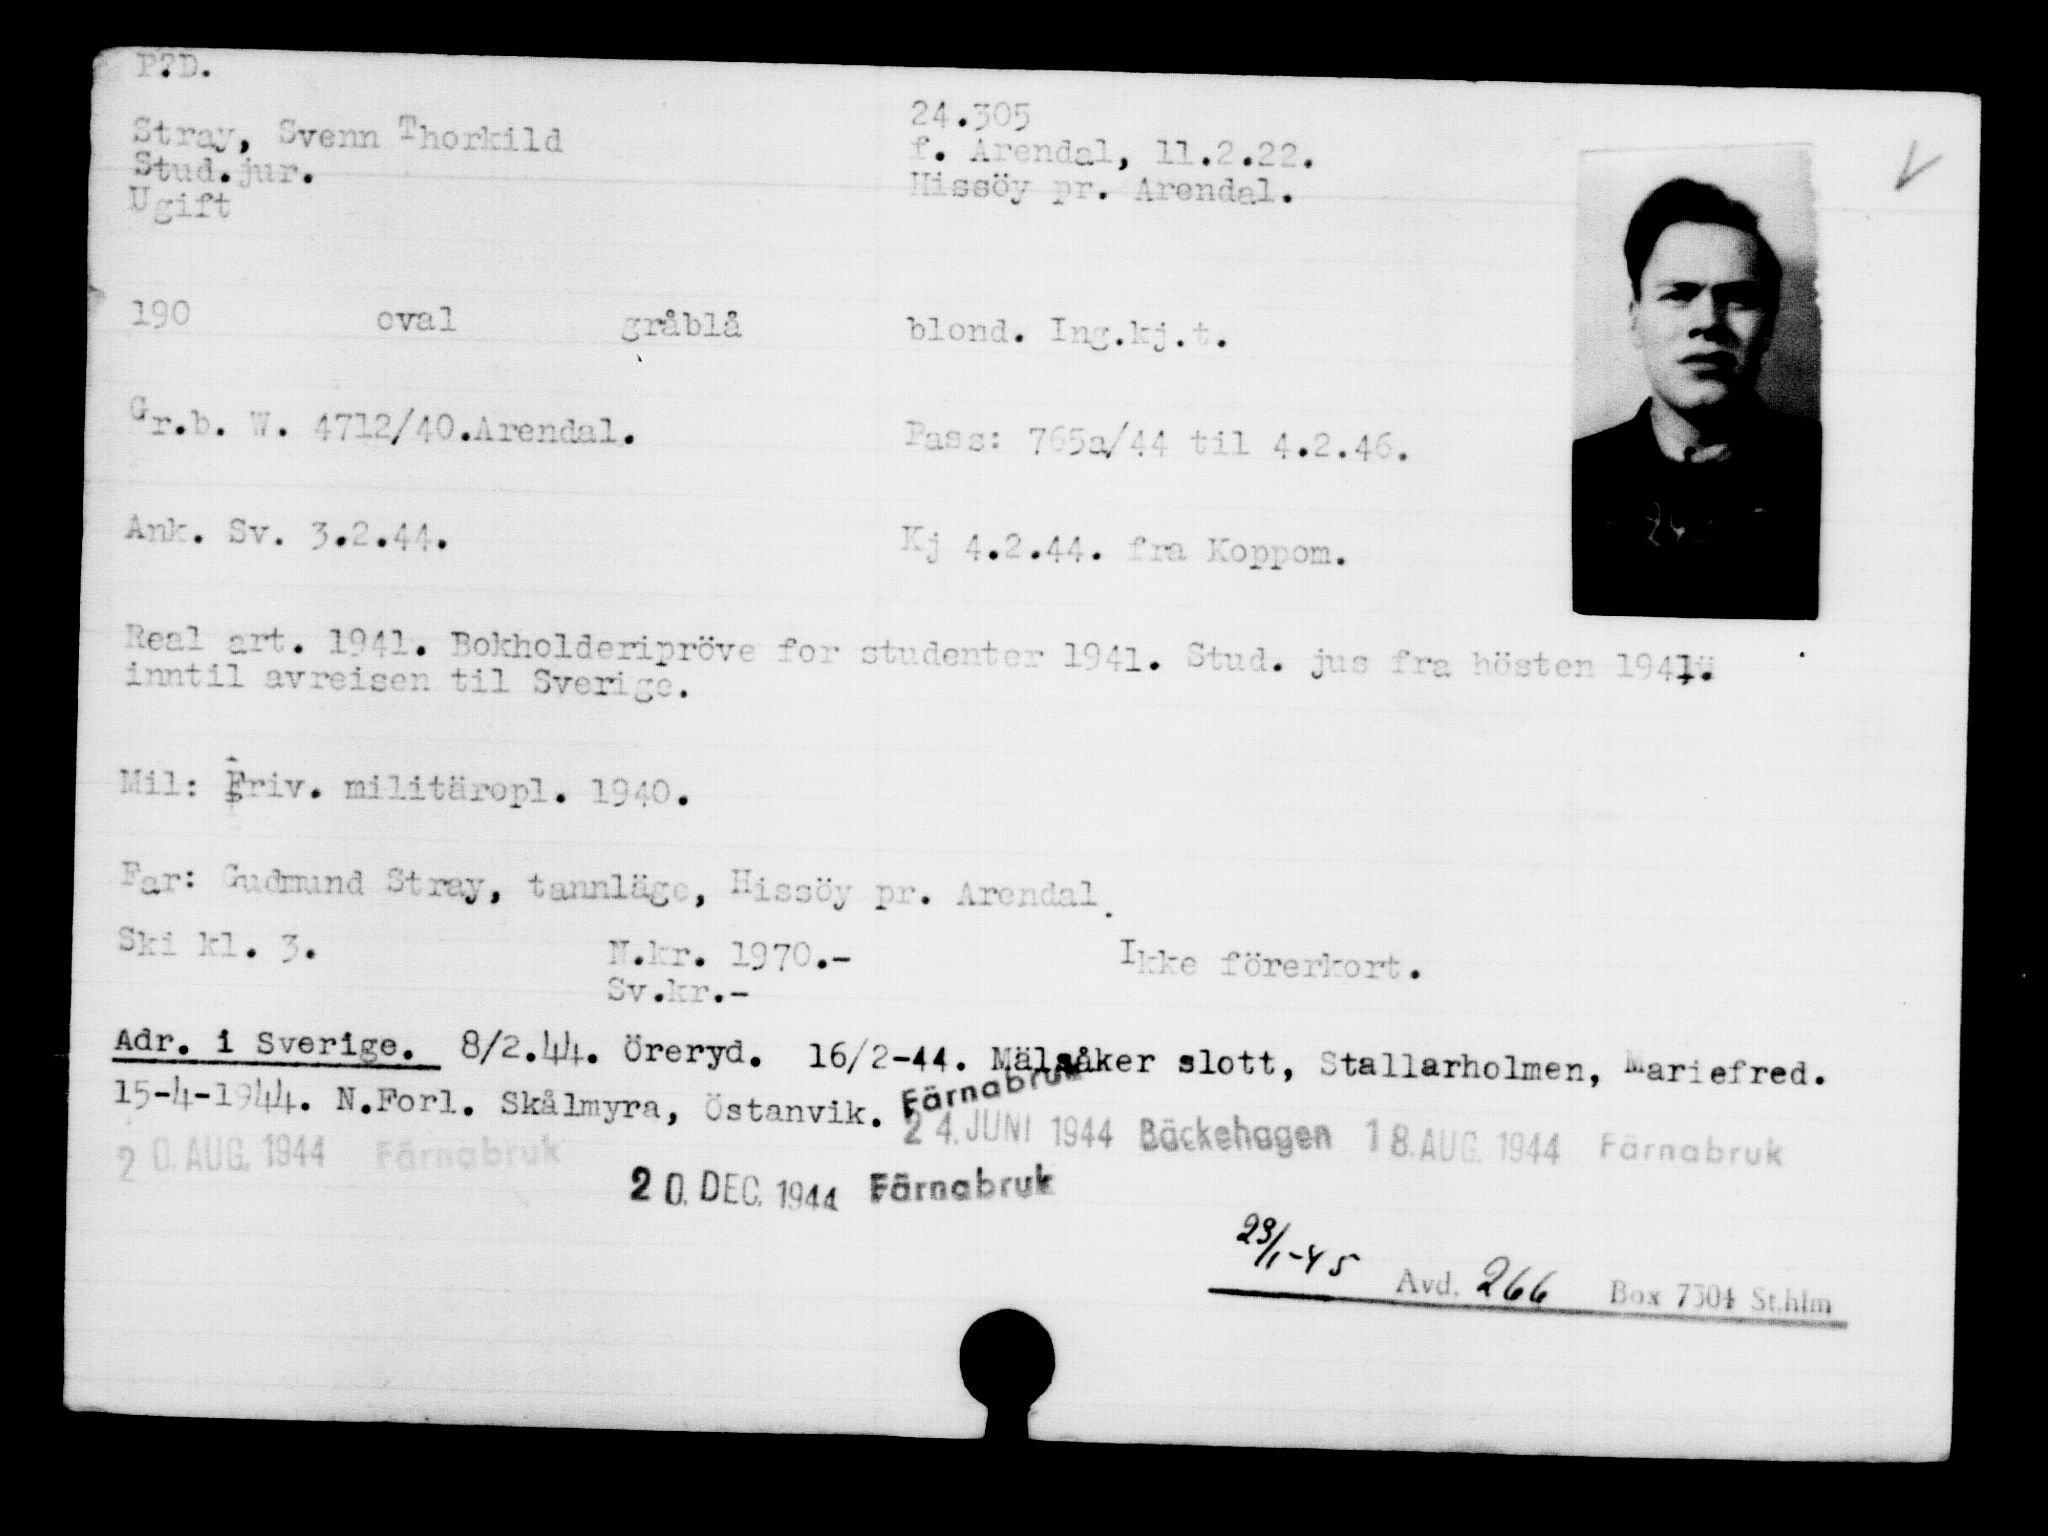 P?D.
Stray, Svenn Thorkild
Stud.jur.
Ugift
24.305
f. Arendal, 11.2.22.
Hissöy pr. Arendal.
190 oval gråblå blond. Ing.kj.t.
Gr.b. W. 4712/40.Arendal. Pass: 765a/44 til 4.2.46.
Ank. Sv. 3.2.44. Kj 4.2.44. fra Koppom.
Real art. 1941. Bokholderipröve for studenter 1941. Stud. jus fra hösten 1941
inntil avreisen til Sverige.
Mil: Priv. militäropl. 1940.
Far: Gudmund Stray, tannläge, Hissöy pr. Arendal.
Ski kl. 3. N.kr. 1970.- Ikke förerkort.
Sv.kr.-
Adr. i Sverige. 8/2.44. Öreryd. 16/2-44. Mälsåker slott, Stallarholmen, Mariefred.
15-4-1944. N.Forl. Skålmyra, Östanvik. Färnabruk
24. JUNI 1944 Bäckehagen 18. AUG. 1944 Färnabruk
20. AUG. 1944 Färnabruk
20. DEC. 1944 Färnabruk
29/1-45 Avd. 266 Box 7304 St.hlm